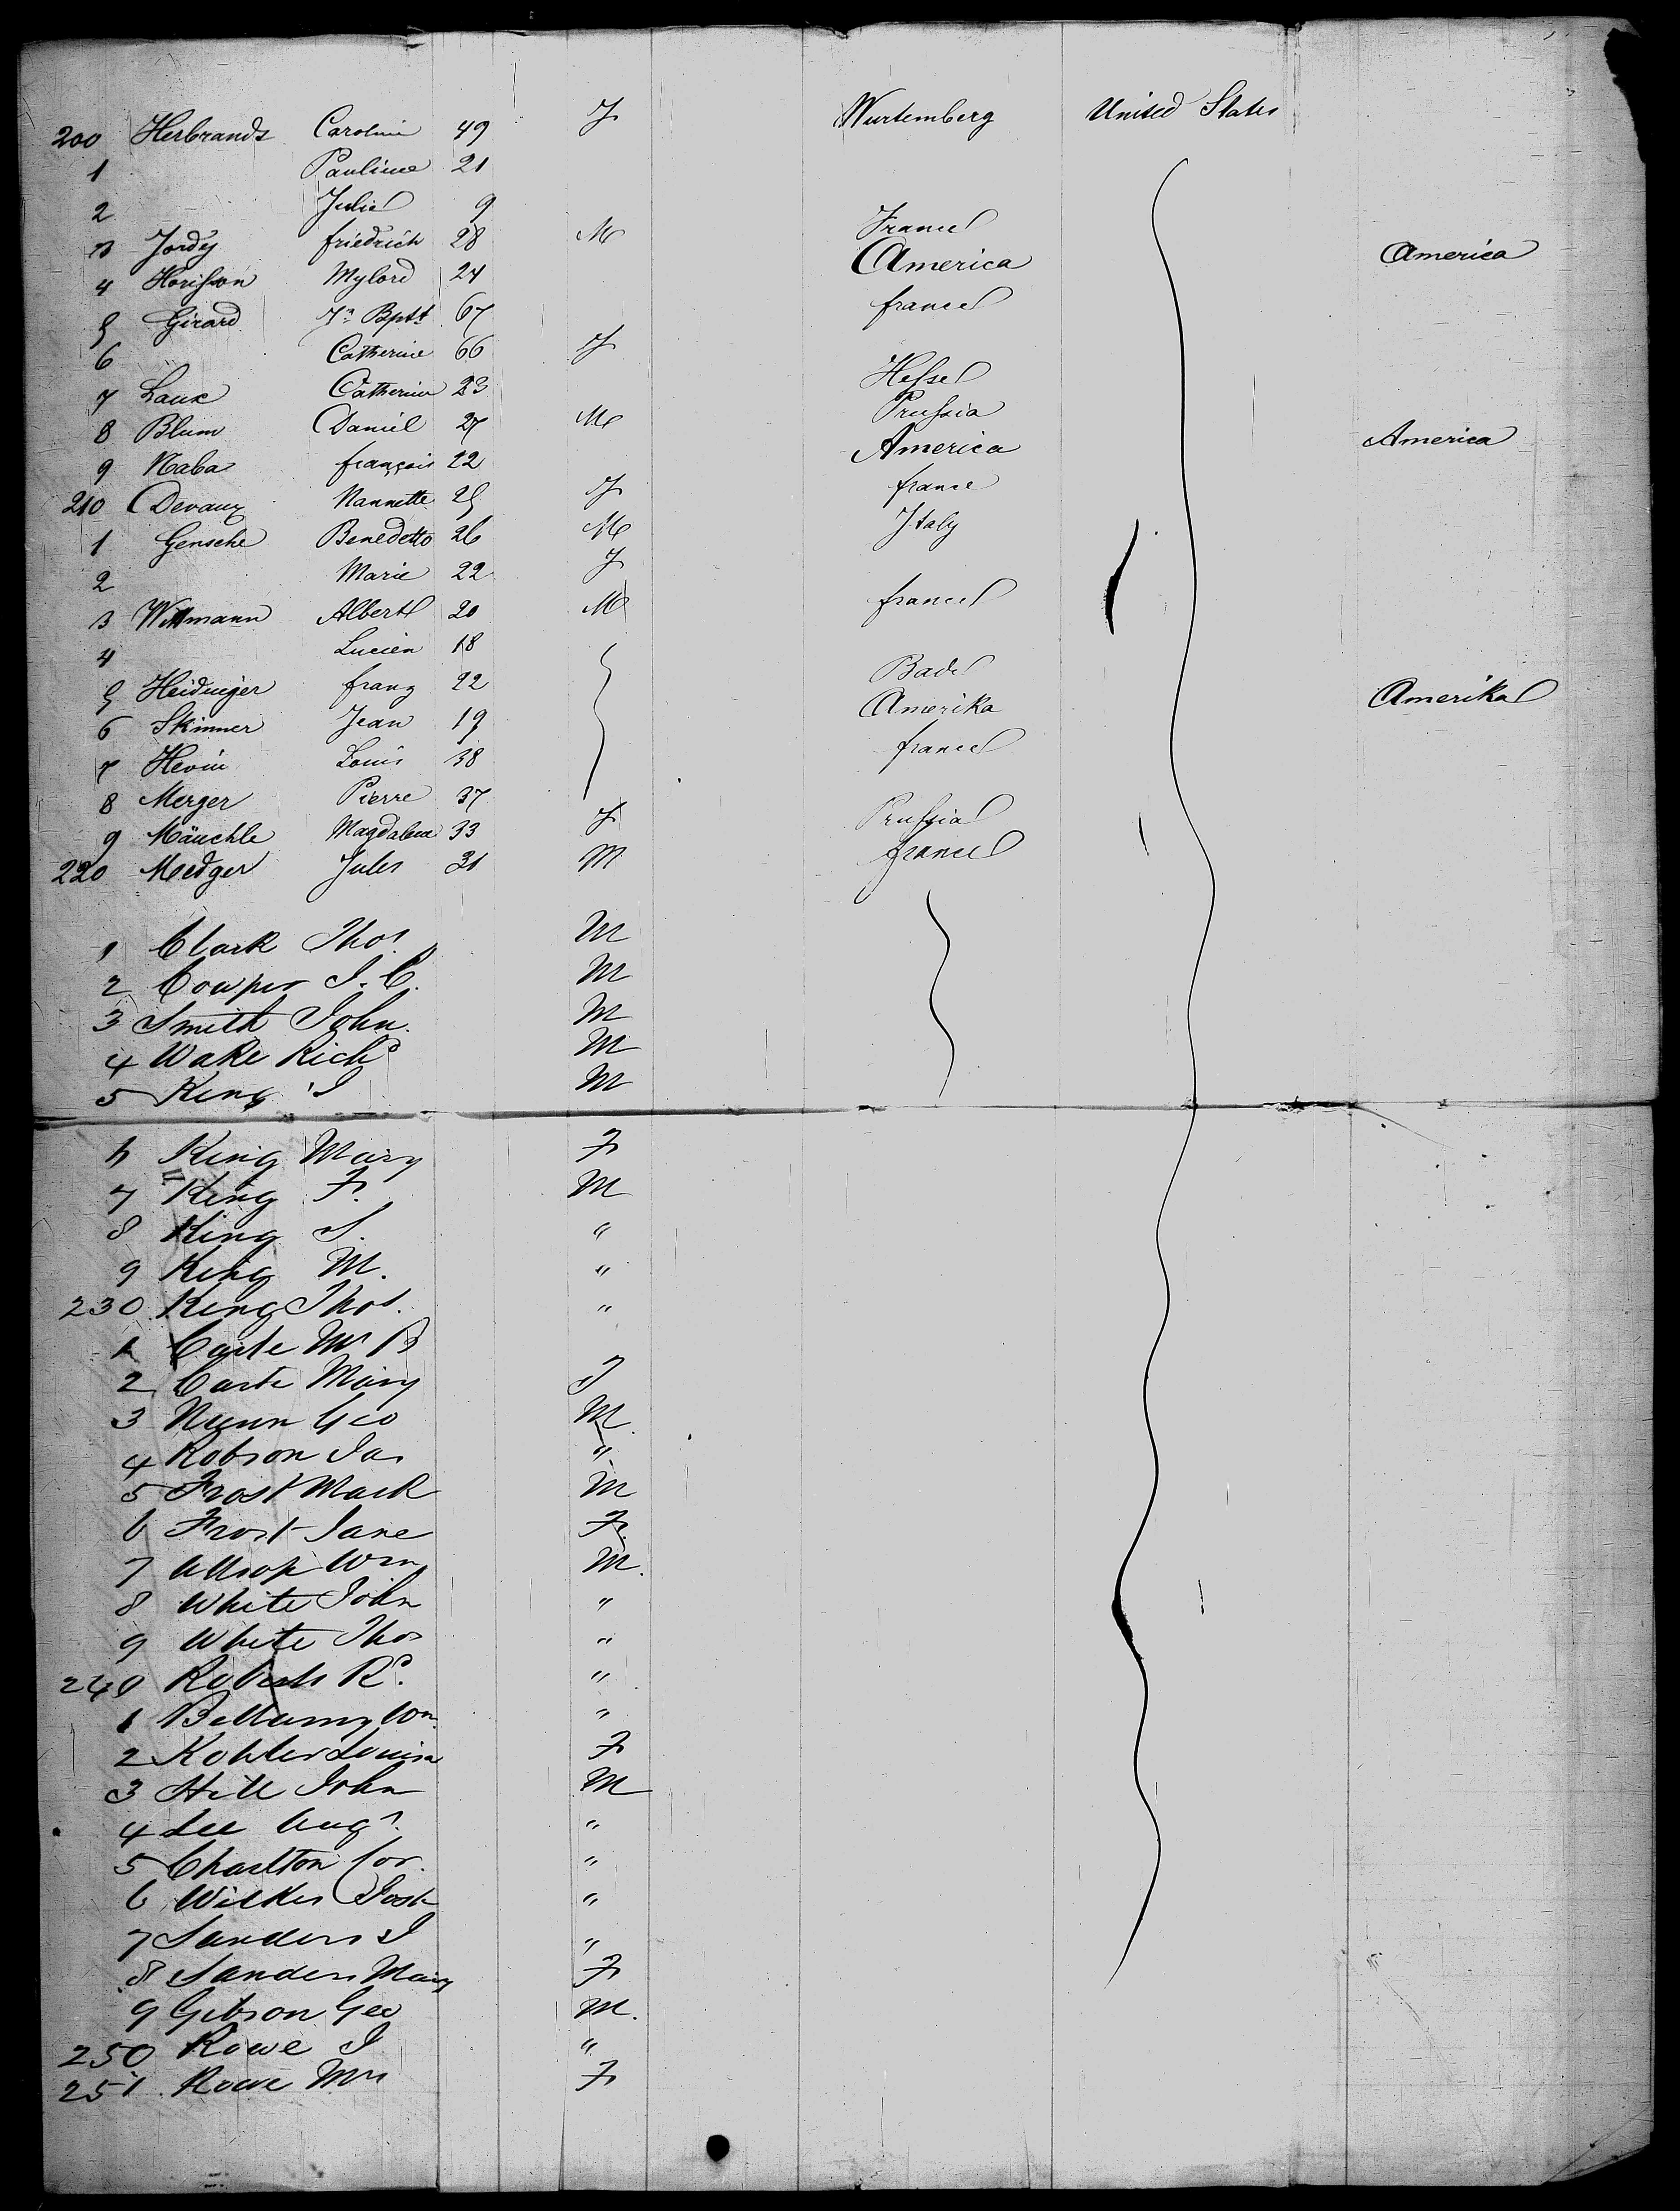 200 Herbrandt Caroline 49 F Wurtemberg United States
1 Pauline 21
2 Julie 9
3 Jordy friedrich 28 M France
4 Horisson Mylord 24 America America
5 Girard Jn Bptt 67 france
6 Catherine 66 F
7 Laux Catherine 23 Hesse
8 Blum Daniel 27 M Prussia
9 Naba françois 22 America America
210 Devaux Nannette 25 F france
1 Gensche Benedetto 26 M Italy
2 Marie 22 F
3 Wittmann Albert 20 M france
4 Lucien 18
5 Heidinger franz 22 Bade
6 Skinner Jean 19 Amerika Amerika
7 Hevin Louis 38 france
8 Merger Pierre 37
9 Mäuchle Magdalena 33 F Prussia
220 Medger Jules 31 M france
1 Clark Thos. M
2 Cowper J. C. M
3 Smith John. M
4 Wake Richd M
5 King J M
6 King Mary F
7 King F. M
8 King S. "
9 King M. "
230 King Thos. "
1 Carte Mr B
2 Carte Mary F
3 Nunn Geo M.
4 Robson Jas "
5 Frost Mark M
6 Frost Jane F.
7 Allsop Wm M.
8 White John "
9 White Thos "
240 Roberts Rd. "
1 Bellamy Wm. "
2 Kohler Louisa F
3 Hill John M
4 Lee Augs. "
5 Charlton "
6 Wilkes "
7 Sanders J "
8 Sanders Mary F
9 Gibson Geo M.
250 Rowe J "
251 Rowe Mrs F